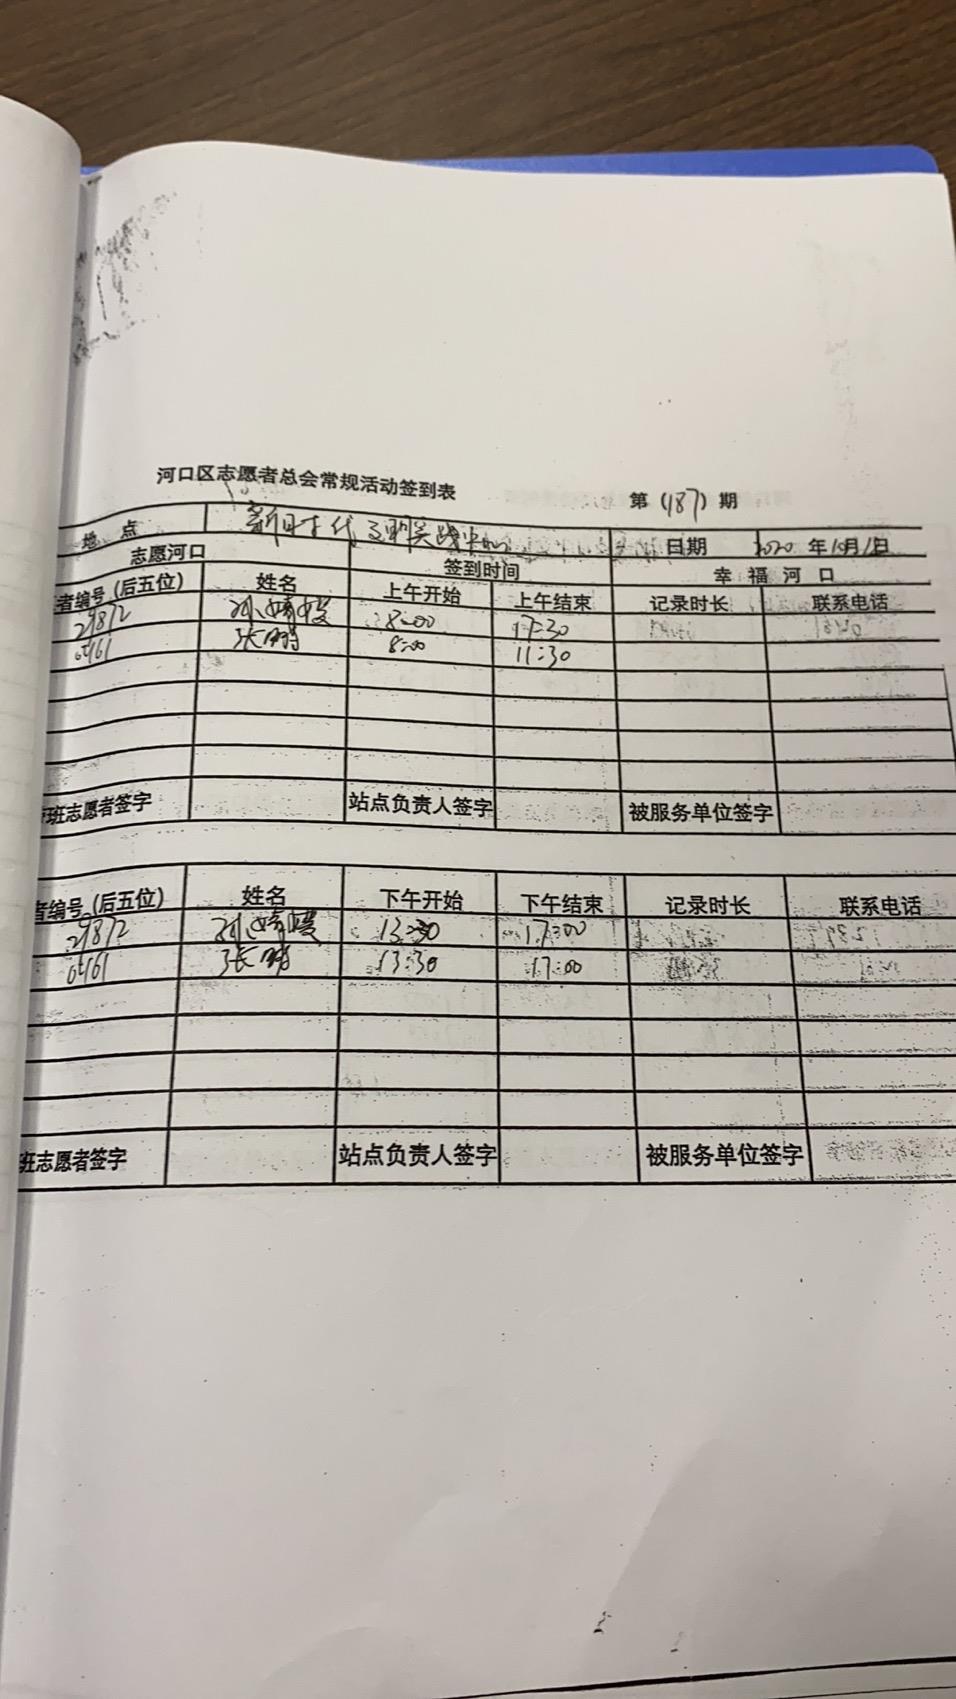 河口区志愿者总会常规活动签到表
第（187）期
地 点 新时代文明实践中心 日期 2020 年10月1日
志愿河口 签到时间 幸 福 河 口
者编号（后五位） 姓名 上午开始 上午结束 记录时长 联系电话
29872 孙 8:00 17:30
05161 张鹏 8:00 11:30
班志愿者签字 站点负责人签字 被服务单位签字
者编号（后五位） 姓名 下午开始 下午结束 记录时长 联系电话
29872 孙 13:30 17:00
05161 张鹏 13:30 17:00
班志愿者签字 站点负责人签字 被服务单位签字